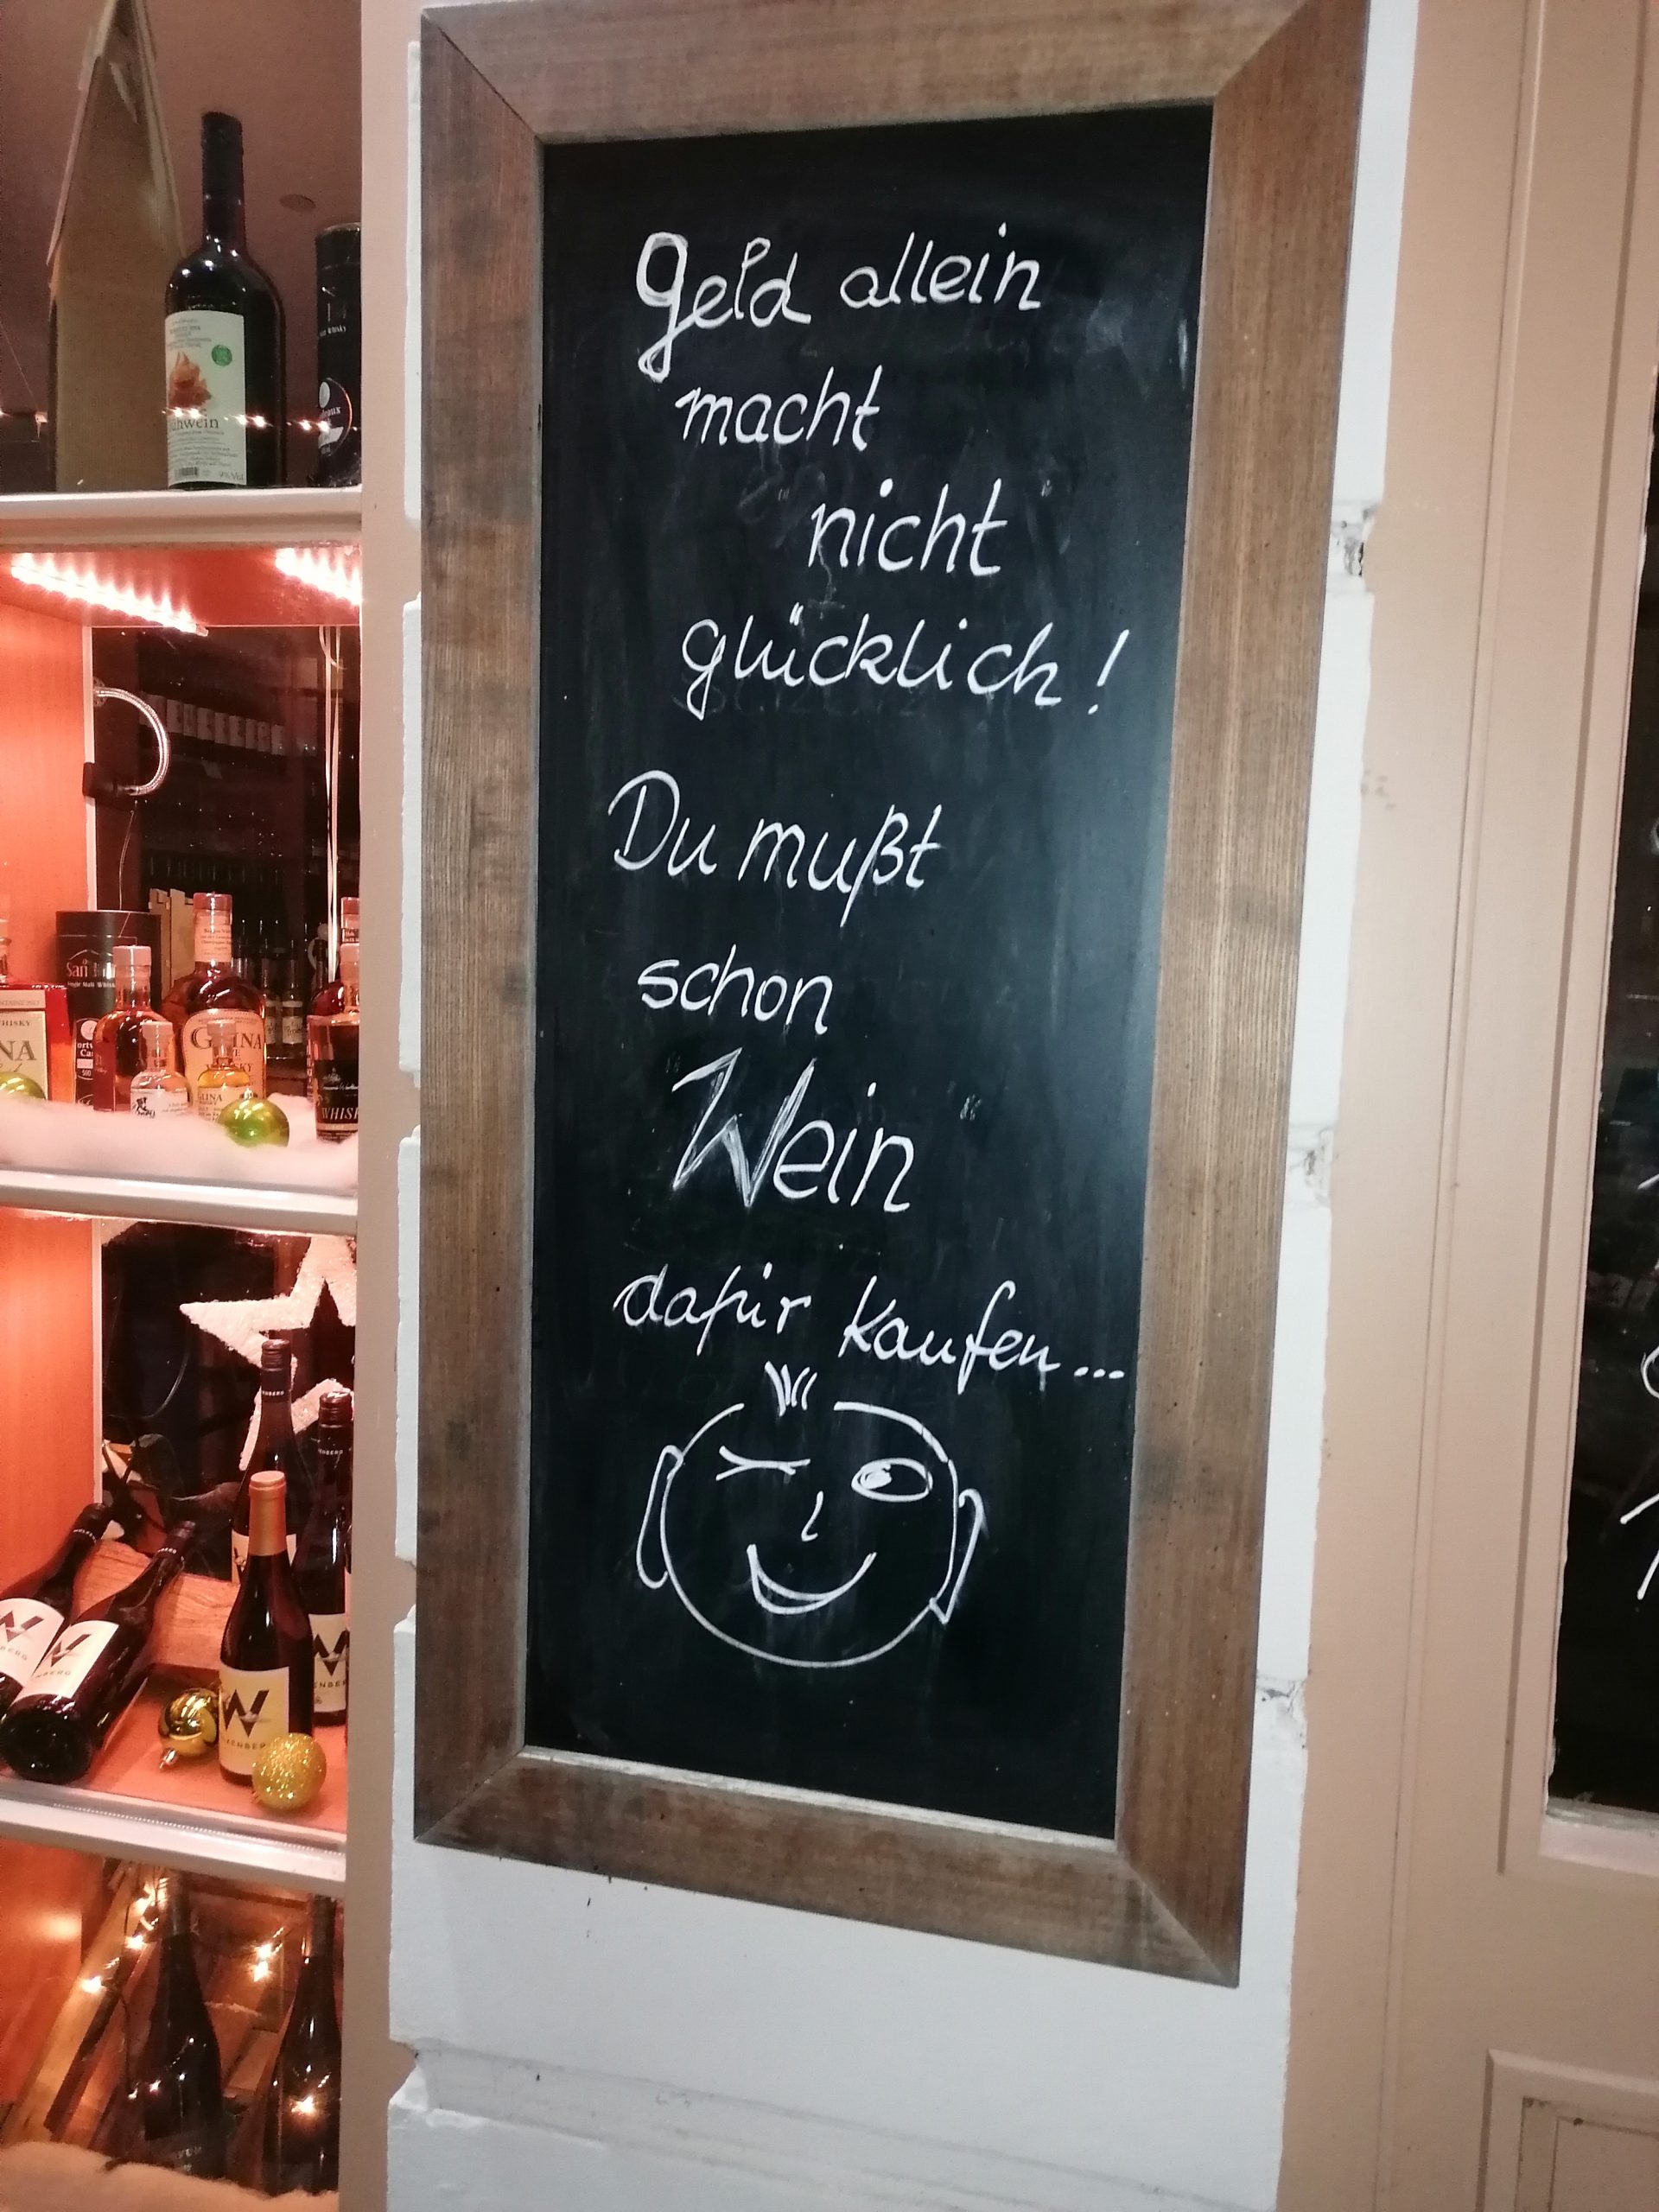 Geld allein
macht
nicht
glücklich!
Du mußt
schon
"Wein"
dafür kaufen...
GLINA
WHISKY
WHISKY
NA
WHISK
W
W
W